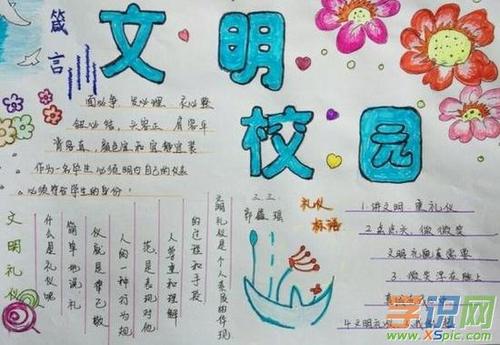 箴言
文明
校园
面必净 发必理 衣必整
钮必结,头容正,肩容平
背容直,颜色宜和宜静宜装
作为一名学生必须明白自己的仪表
必须符合学生的身份!
文明礼仪
什么是礼仪呢
简单地说礼
仪就是律己敬
人的一种行为规
范是表现对他
人尊重和理解
的过程和手段
文明礼仪是个人素质的体现
三.三
礼仪
标语
1.讲文明 重礼仪
2.点点头,微微笑
文明礼貌真需要
3.微笑浮在脸上
4.文明礼仪
学识网
www.XSpic.com